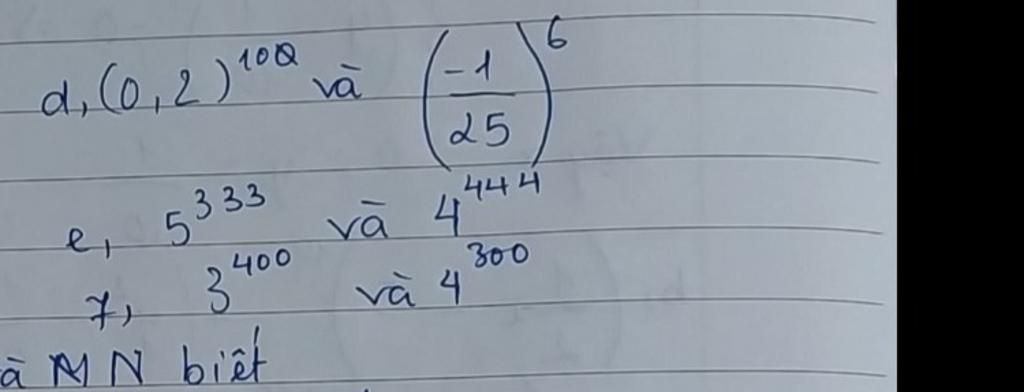 d, (0,2)^100 và (-1/25)^6
e, 5^333 và 4^444
7, 3^400 và 4^300
à MN biết